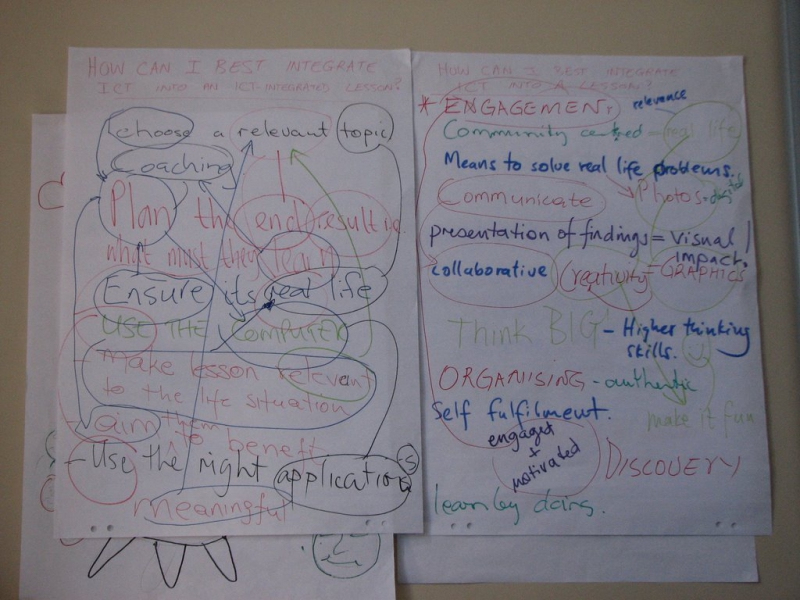 HOW CAN I BEST INTEGRATE
ICT INTO AN ICT-INTEGRATED LESSON?
choose a relevant topic
Coaching
Plan the end result
what must they learn
Ensure its real life
USE THE COMPUTER
- Make lesson relevant
to the life situation
- aim them
to benefit
- Use the right application
meaningful
HOW CAN I BEST INTEGRATE
ICT INTO A LESSON?
* ENGAGEMENT relevance
Community - real life
Means to solve real life problems.
Communicate Photos
presentation of findings = Visual
impact.
collaborative Creativity - GRAPHICS
THINK BIG - Higher thinking
skills.
ORGANISING - authentic
Self fulfilment. make it fun
engaged
+
motivated
DISCOVERY
learn by doing.